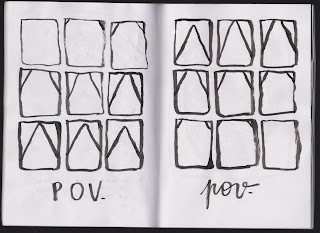 POV.
pov.